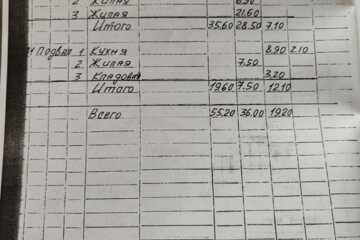 2 Жилая 6.90
3 Жилая 21.60
Итого 35.60 28.50 7.10
Подвал 1 Кухня 8.90 2.10
2 Жилая 7.50
3 Кладовая 3.20
Итого 19.60 7.50 12.10
Всего 55.20 36.00 19.20